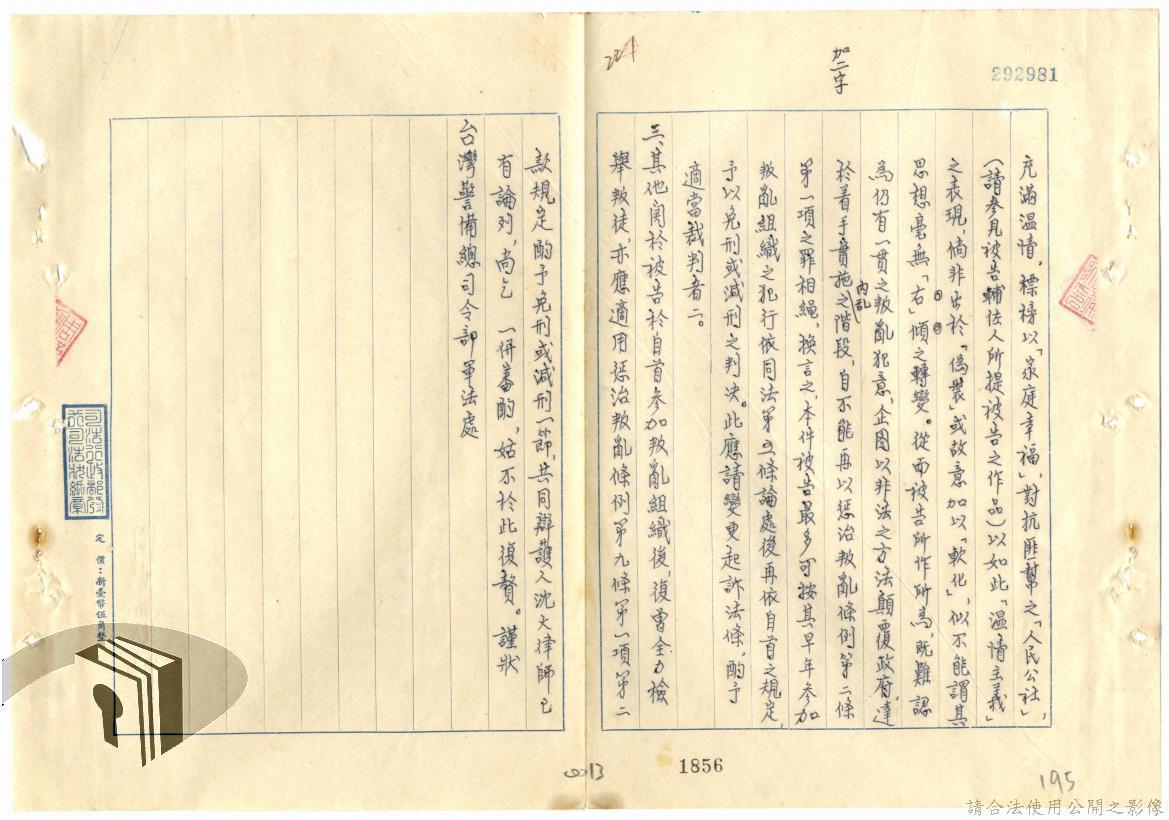 292981
加二字
221
充滿温情，標榜以「家庭幸福」，對抗匪幫之「人民公社」，
（請參見被告輔佐人所提被告之作品）以如此「温情主義」
之表現，倘非出於「偽裝」或故意加以「軟化」，似不能謂其
思想毫無「右」傾之轉變。從而被告所作所為，既難認
為仍有一貫之叛亂犯意，企圖以非法之方法顛覆政府，達
於着手實施之內乱階段，自不能再以惩治叛亂條例第二條
第一項之罪相繩，換言之，本件被告最多可按其早年參加
叛亂組織之犯行依同法第五條論處後再依自首之規定，
予以免刑或減刑之判决。此應請變更起訴法條，酌予
適當裁判者二。
三、其他関於被告於自首参加叛亂組織後，復曾全力檢
舉叛徒，亦應適用惩治叛亂條例第九條第一項第二
款規定酌予免刑或減刑一節，共同辯護人沈大律師已
有論列，尚乞　一併審酌，姑不於此復贅。謹狀
台灣警備總司令部軍法處
司法行政部發
行司法狀紙章
定價：新臺幣伍角整
0013
1856
195
請合法使用公開之影像